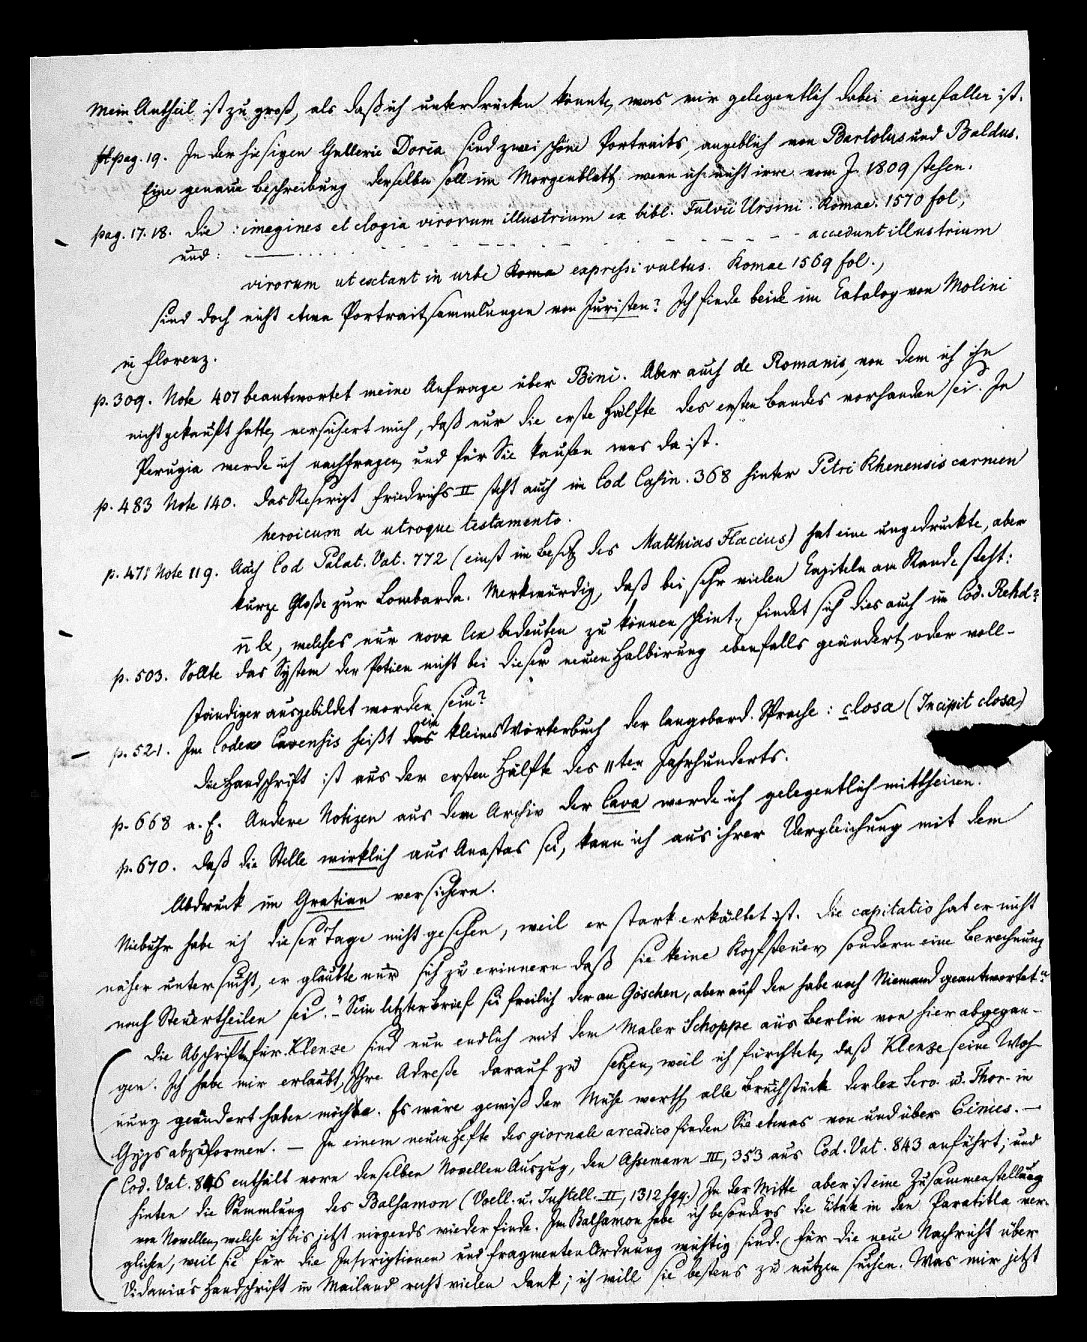 mein Antheil ist zu groß, als daß ich unterdrücken könnte, was mir gelegentlich dabei eingefallen ist.
pag. 19. In der hiesigen Gallerie Doria sind zwei schöne Portraits, angeblich von Bartolus und Baldus.
Eine genaue Beschreibung derselben soll im Morgenblatt, wenn ich nicht irre vom J. 1809 stehen.
pag. 17. 18. Die: imagines et elogia virorum illustrium ex bibl. Fulvii Ursini. Romae. 1570 fol,
und: — — — — — — — — accedunt illustrium
virorum ut exstant in urbe Roma expressi vultus. Romae 1569 fol.,
sind doch nicht etwa Portraitsammlungen von Juristen? Ich finde beide im Catalog von Molini
in Florenz.
p. 309. Note 407 beantwortet meine Anfrage über Bini. Aber auch de Romanis, von dem ich ihn
nicht gekauft hatte, versichert mich, daß nur die erste Hälfte des ersten Bandes vorhanden sei. In
Perugia werde ich nachfragen, und für Sie kaufen was da ist.
p. 483 Note 140. Das Rescript Friedrichs II steht auch im Cod Casin. 368 hinter Petri Rhenensis carmen
heroicum de utroque testamento.
p. 471 Note 119. Auch Cod Palat. Vat. 772 (einst im Besitz des Matthias Flacius) hat eine ungedruckte, aber
kurze Glosse zur Lombarda. Merkwürdig, daß bei sehr vielen Capiteln am Rande steht:
n̄ lx, welches nur nova lex bedeuten zu können scheint, findet sich dies auch im Cod. Rehd?
p. 503. Sollte das System der Potien nicht bei dieser neuen Halbirung ebenfalls geändert, oder voll-
ständiger ausgebildet worden sein?
p. 521. Im Codex Cavensis heißt das ein kleines Wörterbuch der langobard. Sprache: closa (Incipit closa)
die Handschrift ist aus der ersten Hälfte des 11ten Jahrhunderts.
p. 668 a. E. Andere Notizen aus dem Archiv der Cava werde ich gelegentlich mittheilen.
p. 670. daß die Stelle wirklich aus Anastas sei, kann ich aus ihrer Vergleichung mit dem
Abdruck im Gratian versichern.
Niebuhr habe ich dieser Tage nicht gesehen, weil er stark erkältet ist. Die capitatio hat er nicht
näher untersucht, er glaubte nur sich zu erinnern daß sie keine Kopfsteuer, sondern eine Berechnung
nach Steuertheilen sei. „Sein letzter Brief sei freilich der an Göschen, aber auf den habe noch Niemand geantwortet."
Die Abschriften für Klenze sind nun endlich mit dem Maler Schoppe aus Berlin von hier abgegan-
gen. Ich habe mir erlaubt, Ihre Adresse darauf zu setzen, weil ich fürchtete, daß Klenze seine Woh-
nung geändert haben möchte. Es wäre gewiß der Mühe werth, alle Bruchstücke der lex Serv. u. Thor. in
Gyps abzuformen. — In einem neuen Hefte des giornale arcadico finden Sie etwas von und über Cinies. —
Cod. Vat. 846 enthält vorn denselben Novellen Auszug, den Assemann III, 353 aus Cod. Vat. 843 anführt; und
hinten die Sammlung des Balsamon (Voell. u. Justell. II, 1312 sqq.) In der Mitte aber ist eine Zusammenstellung
von Novellen, welche ich bis jetzt nirgends wiederfinde. Im Balsamon habe ich besonders die Citate in den Paratitla ver-
glichen, weil sie für die Inscriptionen und Fragmenten Ordnung wichtig sind. Für die neue Nachricht über
Vidania's Handschrift in Mailand recht vielen Dank; ich will sie bestens zu nützen suchen. Was mir jetzt